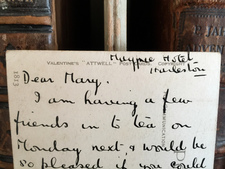 VALENTINE'S "ATTWELL" POST
Magpie Hotel,
Harleston
Dear Mary.
I am having a few
friends in to tea on
Monday next & would be
so pleased if you could